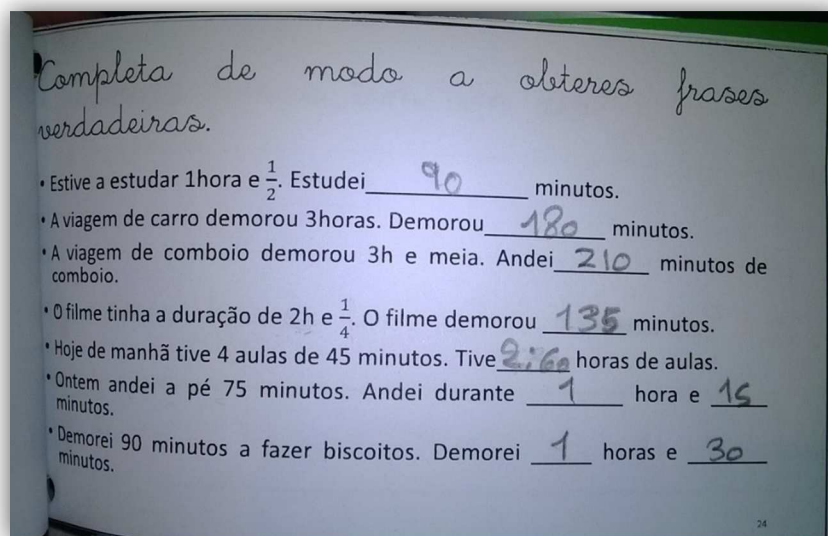 Completa de modo a obteres frases
verdadeiras.
• Estive a estudar 1hora e 1/2. Estudei 90 minutos.
• A viagem de carro demorou 3horas. Demorou 180 minutos.
• A viagem de comboio demorou 3h e meia. Andei 210 minutos de
comboio.
• O filme tinha a duração de 2h e 1/4. O filme demorou 135 minutos.
• Hoje de manhã tive 4 aulas de 45 minutos. Tive 2:60 horas de aulas.
• Ontem andei a pé 75 minutos. Andei durante 1 hora e 15
minutos.
• Demorei 90 minutos a fazer biscoitos. Demorei 1 horas e 30
minutos.
24